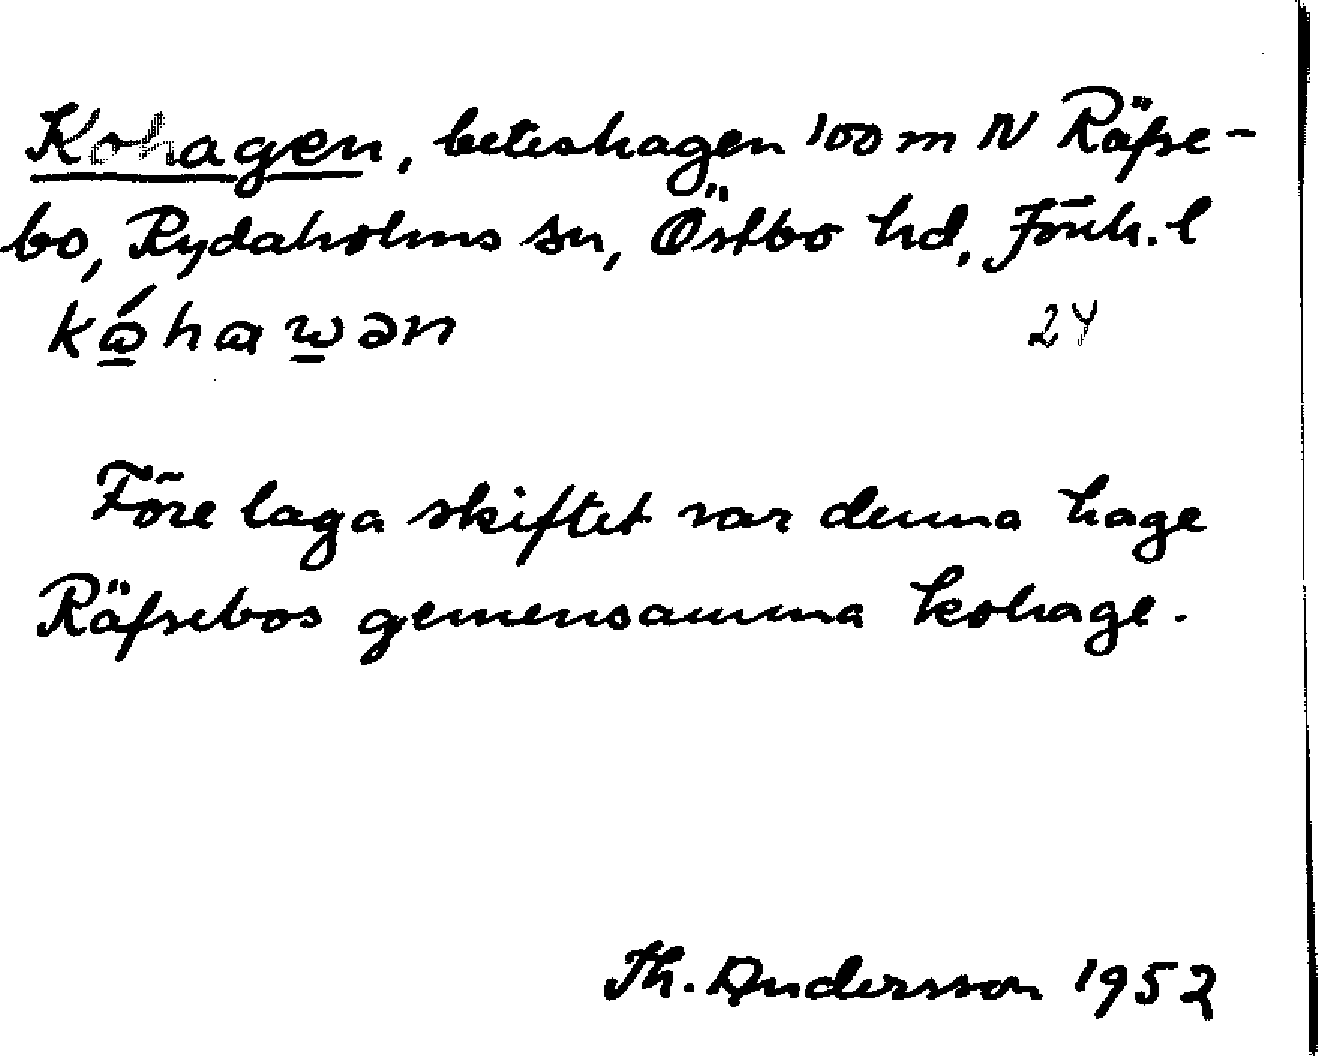 Kohagen, beteshagen 100 m N Räfse-
bo, Rydaholms sn, Östbo hd, Jönk. l
kώhaɯən 24
Före laga skiftet var denna hage
Räfsebos gemensamma kohage.
Th. Andersson 1952